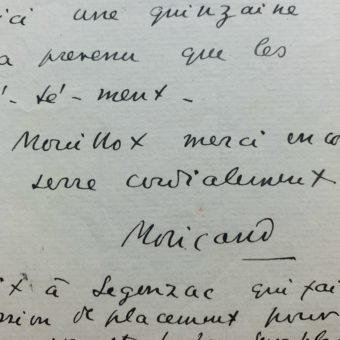 ici une quinzaine
a prevenu que les
- té - ment -
Mouillox merci enco
serre cordialement
Moricand
à Segonzac qui
sion de placement pour